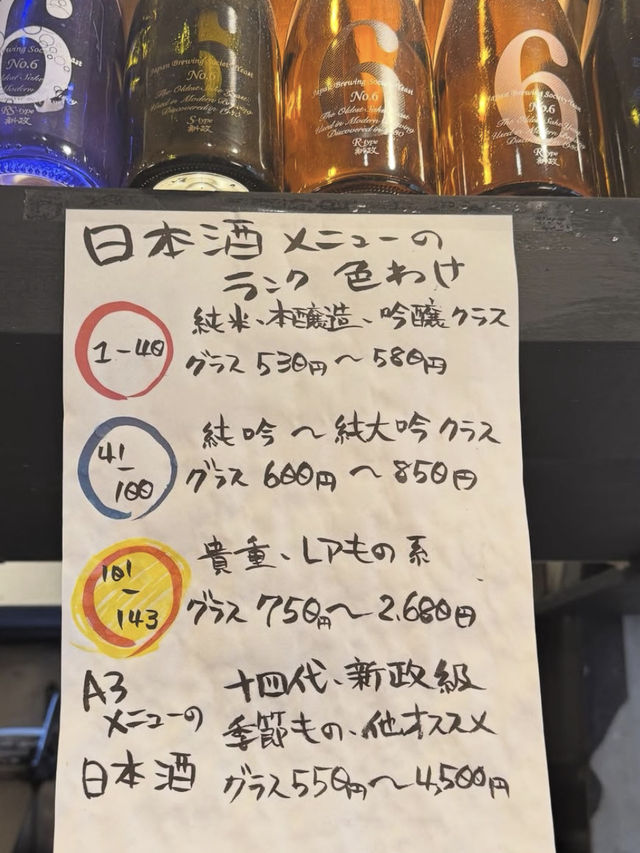 Japan Brewing Society Yeast
No.6
The Oldest Sake Yeast
Used in Modern Brewing
Discovered in 1930
S-type
新政
6
Japan Brewing Society Yeast
No.6
The Oldest Sake Yeast
Used in Modern Brewing
R-type
新政
6
No.6
The Oldest Sake Yeast
R-type
新政
日本酒メニューの
ランク 色わけ
1-40
純米、本醸造、吟醸クラス
グラス 530円〜580円
41
-
100
純吟〜純大吟クラス
グラス 600円〜850円
101
-
143
貴重、レアもの系
グラス 750円〜2,680円
A3
メニューの
日本酒
十四代、新政級
季節もの、他オススメ
グラス550円〜4,500円